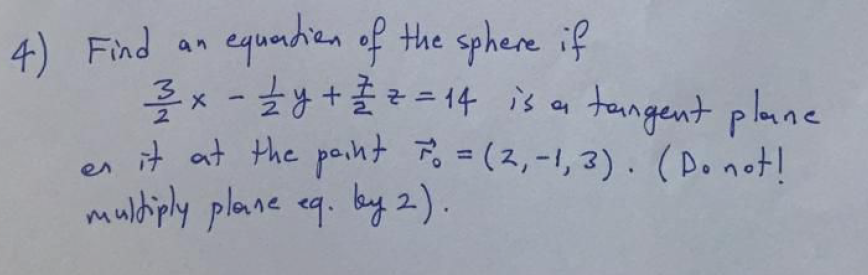 4) Find an equation of the sphere if
3/2 x - 1/2 y + 7/2 z = 14 is a tangent plane
on it at the point r⃗₀ = (2, -1, 3). (Do not!
multiply plane eq. by 2).